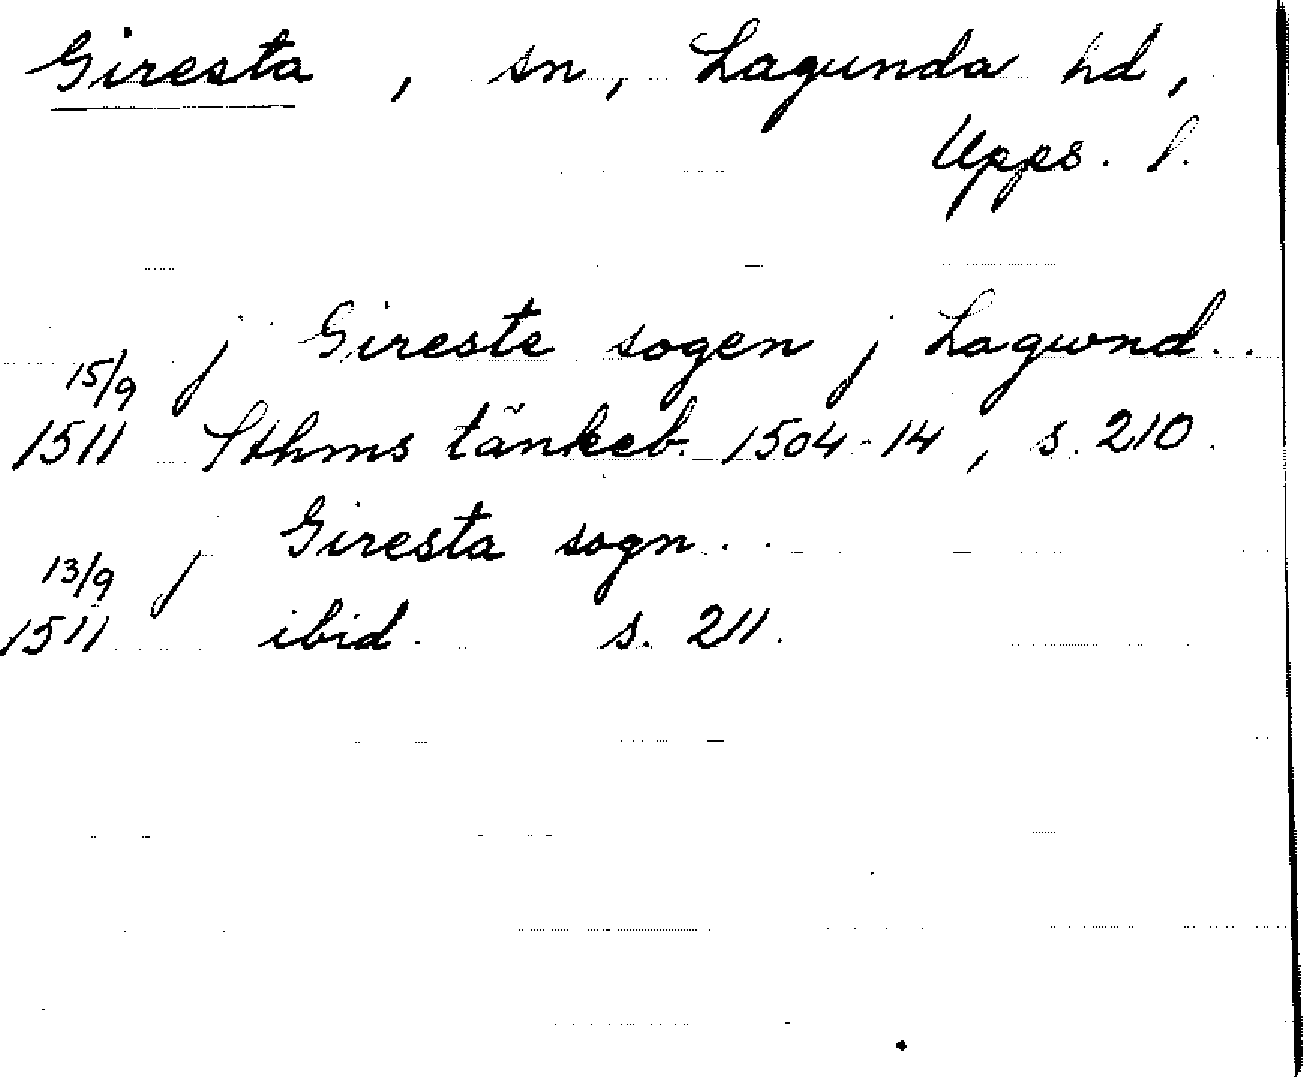 Giresta, sn, Lagunda hd,
Upps. l.
15/9 j Gireste sogen j Lagwnd..
1511 Sthms tänkeb. 1504-14, s. 210.
13/9 j Giresta sogn..
1511 ibid. s. 211.